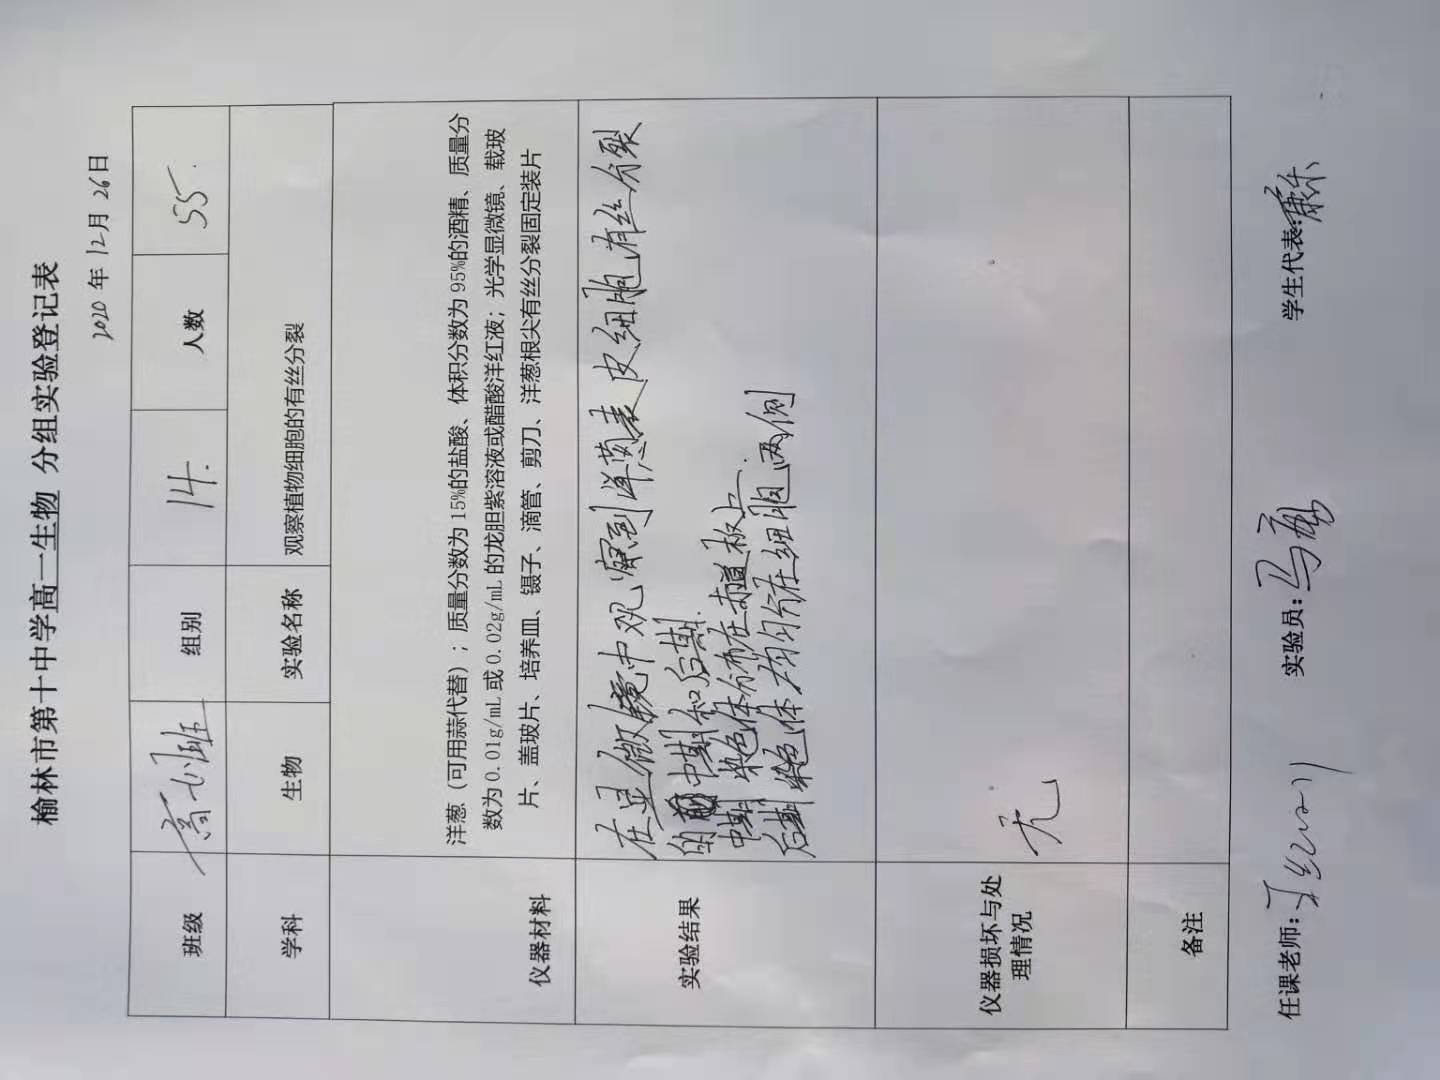 榆林市第十中学高一生物 分组实验登记表
2020 年 12月 26日
班级 组别 14. 人数 55.
学科 生物 实验名称 观察植物细胞的有丝分裂
仪器材料
洋葱（可用蒜代替）；质量分数为15%的盐酸、体积分数为95%的酒精、质量分
数为0.01g/mL或0.02g/mL的龙胆紫溶液或醋酸洋红液；光学显微镜、载玻
片、盖玻片、培养皿、镊子、滴管、剪刀、洋葱根尖有丝分裂固定装片
实验结果
在显微镜中观察到洋葱表皮细胞有丝分裂
的中期和后期.
中期染色体分布在赤道板上.
后期染色体均匀分在细胞两侧
仪器损坏与处
理情况
无
备注
任课老师: 实验员: 学生代表: